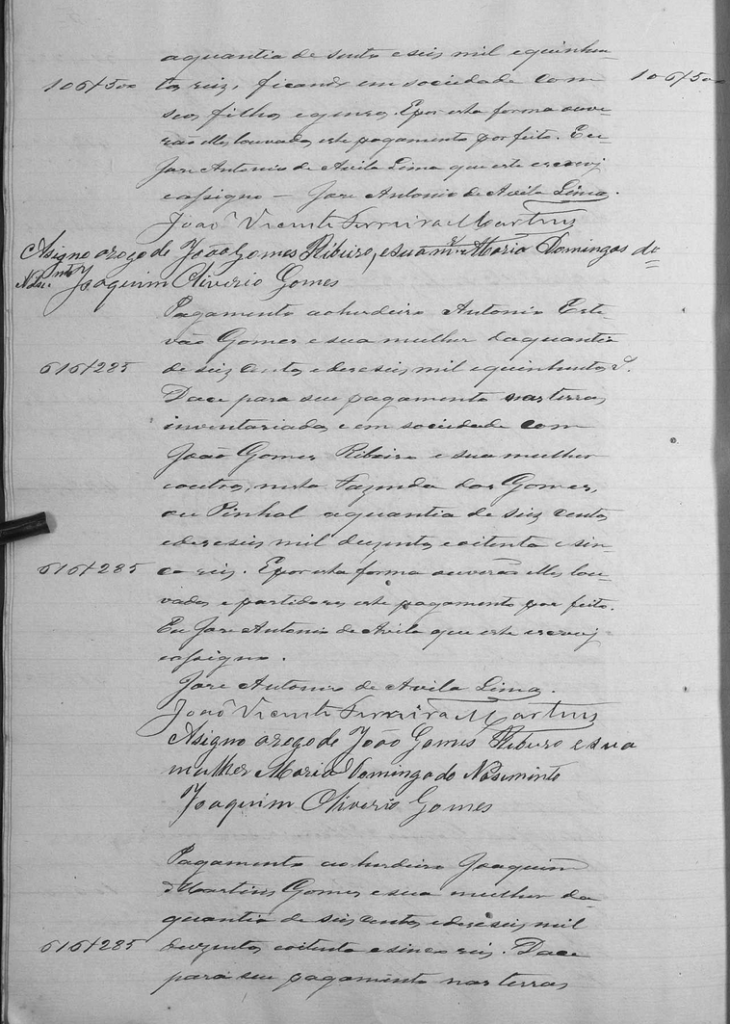 a quantia de sento e seis mil e quinhen
106$500 tos reiz, ficando em sociedade com 106$500
seos filhos e genro. E por esta forma ouve
rão elles louvados este pagamento por feito. Eu
Jose Antonio de Avila Lima que este escrevi
e assigno — Jose Antonio de Avila Lima.
João Vicente Ferreira Martins
Asigno arogo de João Gomes Ribeiro, e sua mer Maria Domingas do
Nasimto Joaquim Oliverio Gomes
Pagamento ao herdeiro Antonio Este
vão Gomes e sua mulher da quantia
616$285 de seis centos e deseseis mil e quinhentos
Dace para seu pagamento nas terras
inventariadas e em sociedade com
João Gomes Ribeiro e sua mulher
e outros, nesta Fazenda dos Gomes,
ou Pinhal a quantia de seis centos
e deseseis mil duzentos e oitenta e sin
616$285 co reis. E por esta forma ouverão elles lou
vados e partidores este pagamento por feito.
Eu Jose Antonio de Avila que este escrevi
e assigno.
Jose Antonio de Avila Lima.
João Vicente Ferreira Martins
Asigno arogo de João Gomes Ribeiro e sua
mulher Maria Dominga do Nasimento
Joaquim Oliverio Gomes
Pagamento ao herdeiro Joaquim
Martins Gomes e sua mulher da
quantia de seis centos e deseseis mil
616$285 duzentos e oitenta e sinco reis. Dace
para seu pagamento nas terras